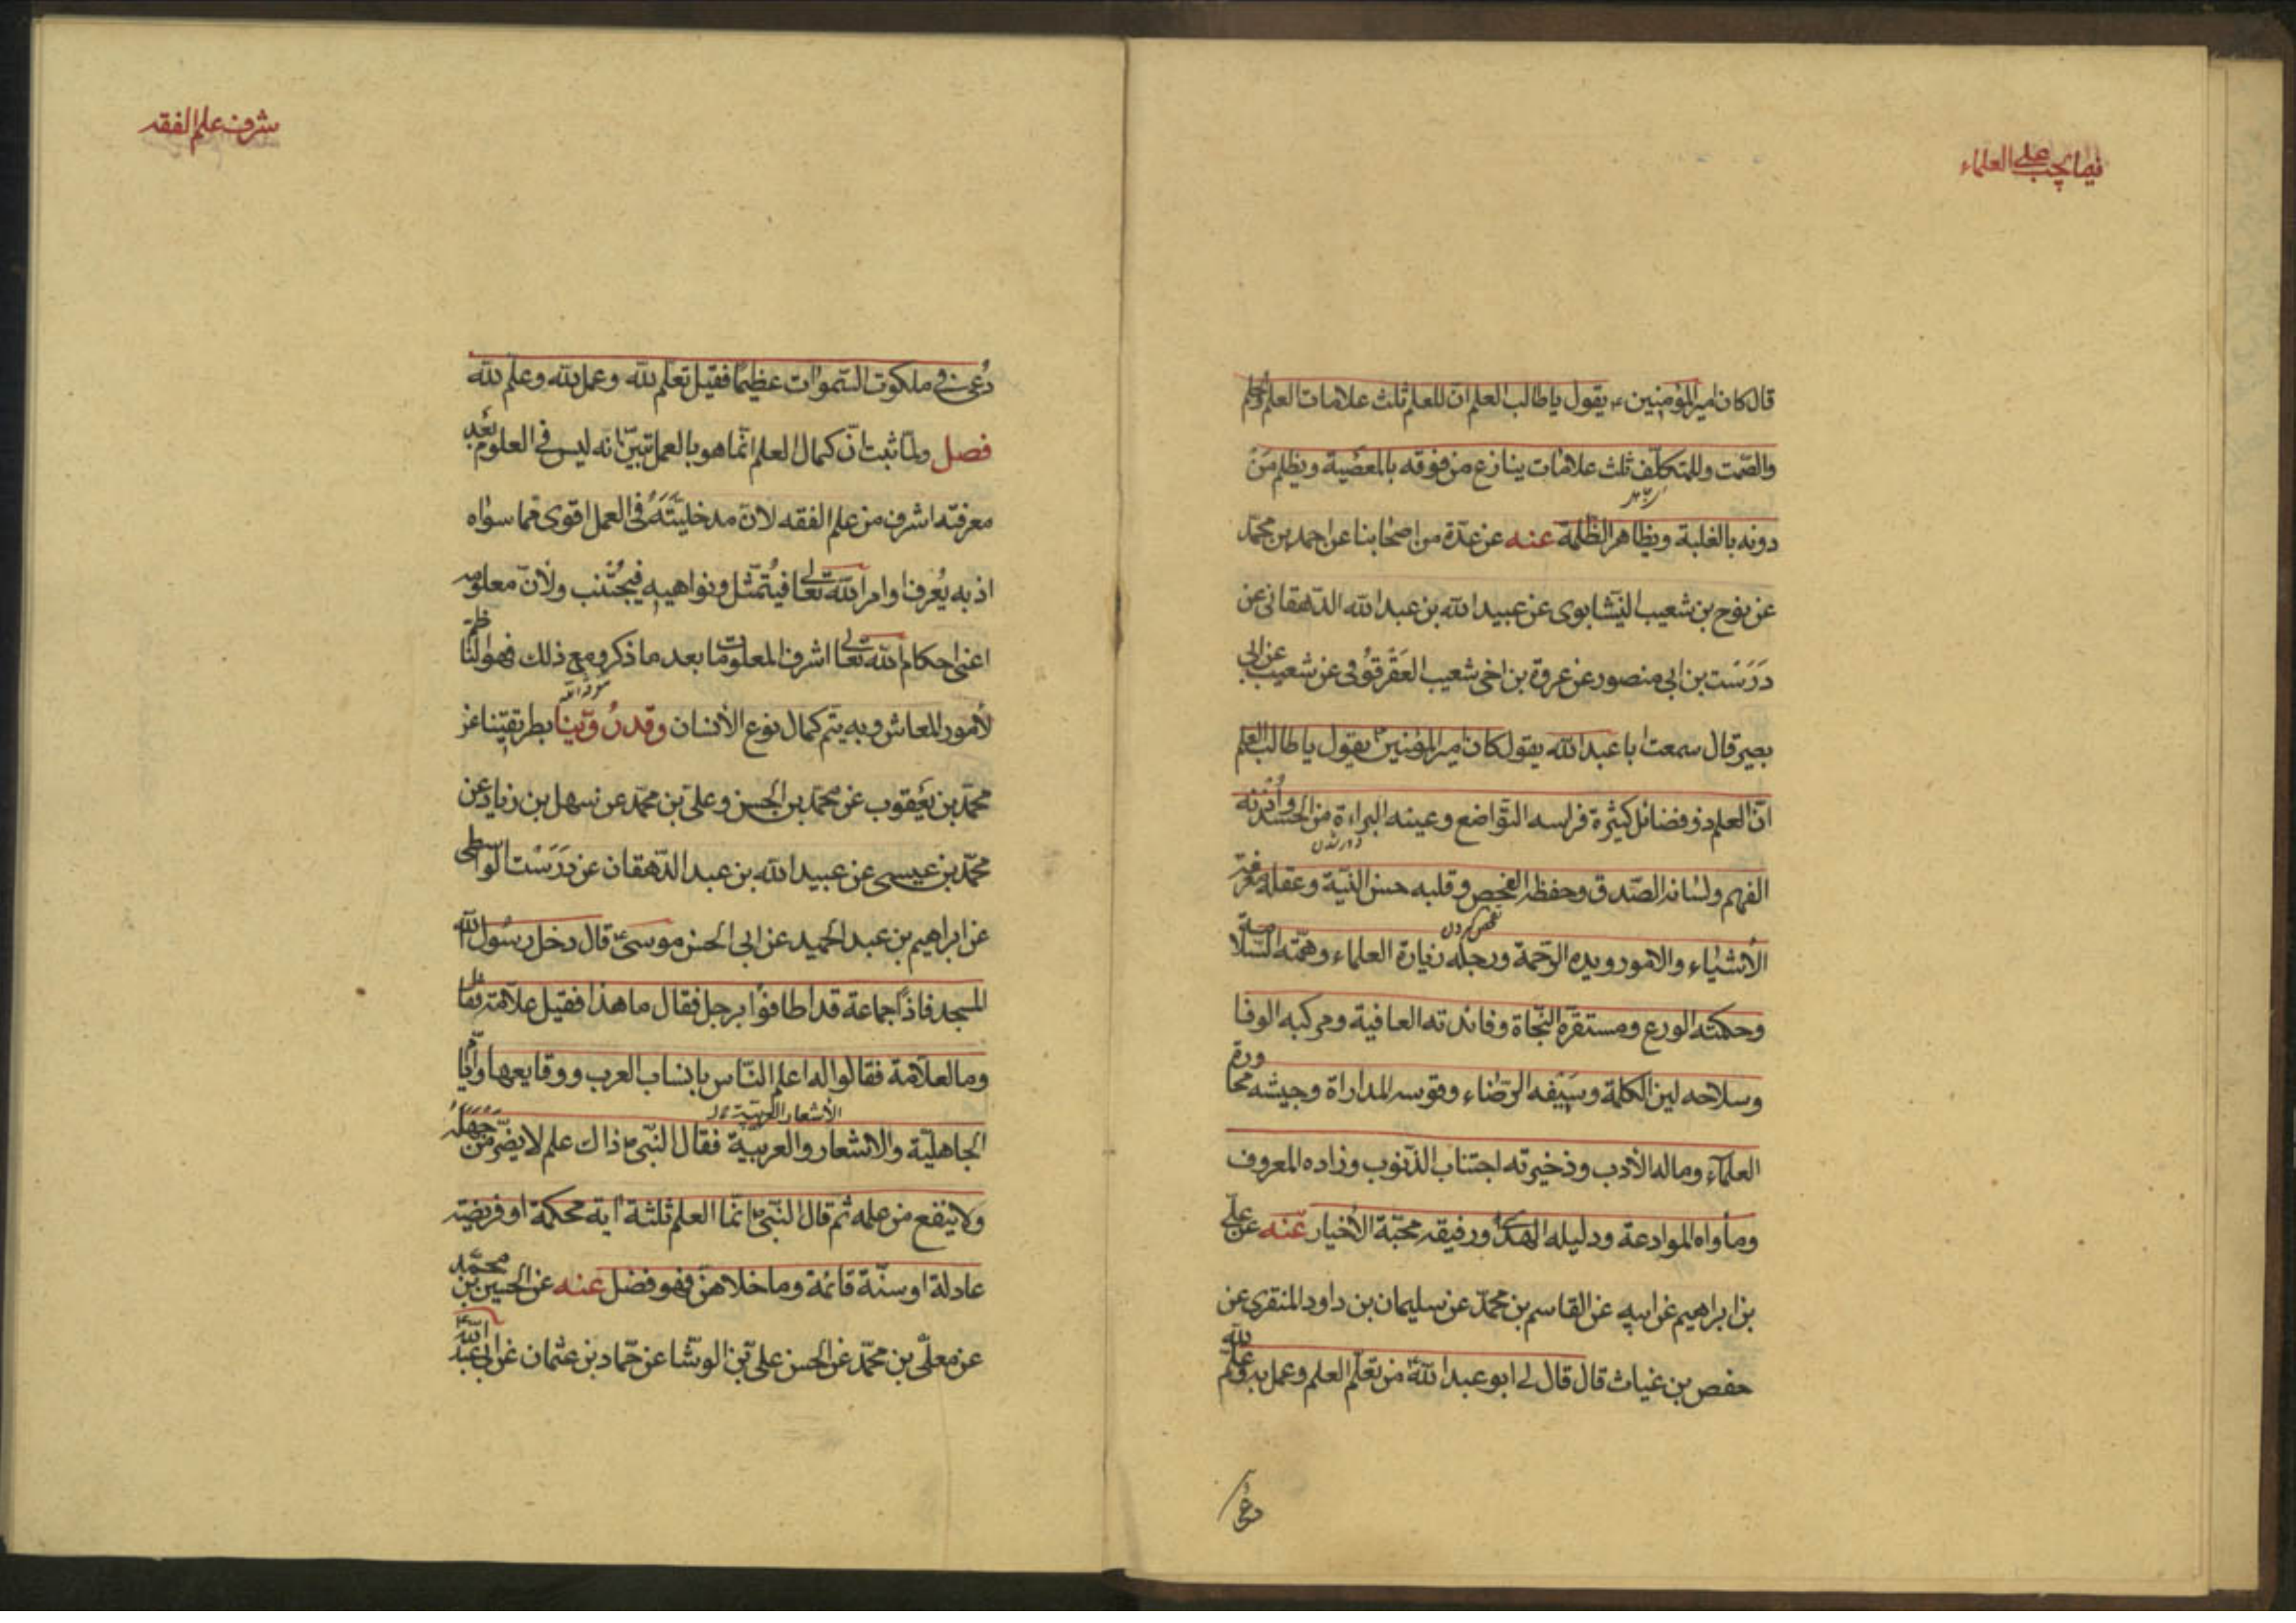 فيما يجب على العلماء
قال كان امير المؤمنين ع يقول يا طالب العلم ان للعلم ثلث علامات العلم والحلم
والصّمت وللمتكلّف ثلث علامات ينازع من فوقه بالمعصية ويظلم مَنْ
دونه بالغلبة ويظاهر الظلمة عنه عن عدّة من اصحابنا عن احمد بن محمّد
عن نوح بن شعيب النيشابوى عن عبيد الله بن عبد الله الدّهقانى عن
دَرَسْت بن ابى منصور عن عروة بن اخى شعيب العَقَرْقُوفى عن شعيب عن ابى
بصير قال سمعت ابا عبد الله يقول كان امير المؤمنين ع يقول يا طالب العلم
انّ العلم ذو فضائل كثيرة فراسه التّواضع وعينه البراءة من الحسد وأُذُنه
الفهم ولسانه الصّدق وحفظه الفحص وقلبه حسن النيّة وعقله معرفة
فحص كردن
الأشياء والامور ويده الرّحمة ورجله زيارة العلماء وهمّته السّلامة
وحكمته الورع ومستقرّه النّجاة وفائدته العافية ومركبه الوفا
وسلاحه لين الكلمة وسَيْفه الرّضاء وقوسه المداراة وجيشه محاورة
العلمآء وماله الأدب وذخيرته اجتناب الذّنوب وزاده المعروف
ومأواه الموادعة ودليله الهدى ورفيقه محبّة الأخيار عنه عن علىّ
بن ابراهيم عن ابيه عن القاسم بن محمّد عن سليمان بن داود المنقرى عن
حفص بن غياث قال قال لى ابو عبد الله ع من تعلّم العلم وعمل به وعلّم لله
دُعى
شرف علم الفقه
دُعى فى ملكوت السّموات عظيمًا فقيل تعلّم لله وعمل لله وعلّم لله
فصل ولمّا ثبت انّ كمال العلم انّما هو بالعمل تبيّن انّه ليس فى العلوم بعد
معرفته اشرف من علم الفقه لانّ مدخليّتَهُ فى العمل اقوى ممّا سواه
اذ به يُعرف اوامر الله تعالى فيُتمثّل ونواهيه فيجُتنب ولأنّ معلومه
اعنى احكام الله تعالى اشرف المعلومات بعد ما ذكر ومع ذلك فهو الناظم
لأمور المعاش وبه يتم كمال نوع الأنسان وقد رُوّينا بطريقنا عن
محمّد بن يعقوب عن محمّد بن الحسن وعلىّ بن محمّد عن سهل بن زياد عن
محمّد بن عيسى عن عبيد الله بن عبد الدّهقان عن دَرَسْت الواسطى
عن ابراهيم بن عبد الحميد عن ابى الحسن موسى ع قال دخل رسول الله
المسجد فاذا جماعة قد اطافوا برجل فقال ما هذا فقيل علاّمة فقال
وما العلاّمة فقالوا له اعلم النّاس بانساب العرب ووقايعها وايّام
الأشعار العربيّة
الجاهليّة والاشعار والعربيّة فقال النّبى ص ذاك علم لا يضرّ من جهله
ولا ينفع من علمه ثم قال النّبى ص انّما العلم ثلثة اية محكمة او فريضة
عادلة او سنّة قائمة وما خلاهنّ فهو فضل عنه عن الحسين بن محمّد
عن معلّى بن محمّد عن الحسن على بن الوشّا عن حمّاد بن عثمان عن ابى عبد الله ع